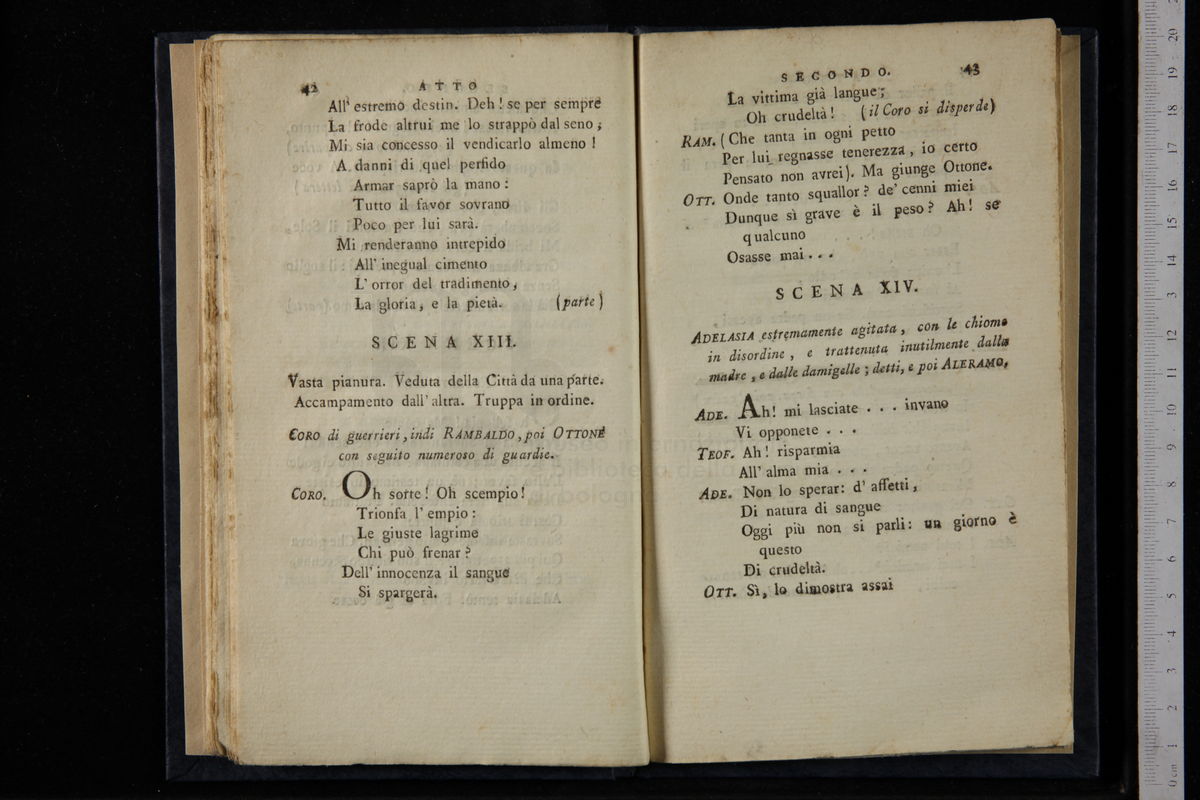 42 ATTO
All' estremo destin. Deh! se per sempre
La frode altrui me lo strappò dal seno,
Mi sia concesso il vendicarlo almeno!
A danni di quel perfido
Armar saprò la mano:
Tutto il favor sovrano
Poco per lui sarà.
Mi renderanno intrepido
All' inegual cimento
L' orror del tradimento,
La gloria, e la pietà. (parte)
SCENA XIII.
Vasta pianura. Veduta della Città da una parte.
Accampamento dall' altra. Truppa in ordine.
CORO di guerrieri, indi RAMBALDO, poi OTTONE
con seguito numeroso di guardie.
CORO. Oh sorte! Oh scempio!
Trionfa l' empio:
Le giuste lagrime
Chi può frenar?
Dell' innocenza il sangue
Si spargerà.
SECONDO. 43
La vittima già langue;
Oh crudeltà! (il Coro si disperde)
RAM. (Che tanta in ogni petto
Per lui regnasse tenerezza, io certo
Pensato non avrei). Ma giunge Ottone.
OTT. Onde tanto squallor? de' cenni miei
Dunque sì grave è il peso? Ah! se
qualcuno
Osasse mai...
SCENA XIV.
ADELASIA estremamente agitata, con le chiome
in disordine, e trattenuta inutilmente dalla
madre, e dalle damigelle; detti, e poi ALERAMO.
ADE. Ah! mi lasciate... invano
Vi opponete...
TEOF. Ah! risparmia
All' alma mia...
ADE. Non lo sperar: d' affetti,
Di natura di sangue
Oggi più non si parli: un giorno è
questo
Di crudeltà.
OTT. Sì, lo dimostra assai
0 cm 1 2 3 4 5 6 7 8 9 10 11 12 13 14 15 16 17 18 19 20